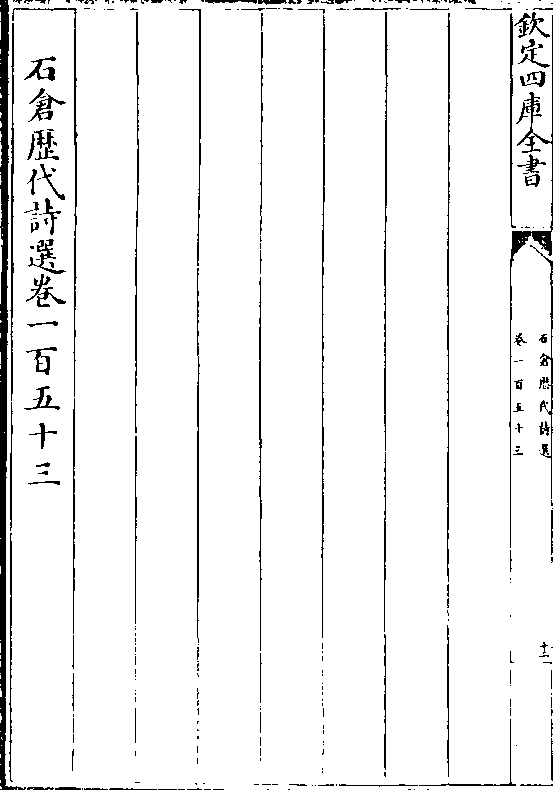 欽定四庫全書
石倉歴代詩選
卷一百五十三
十二
石倉歴代詩選卷一百五十三